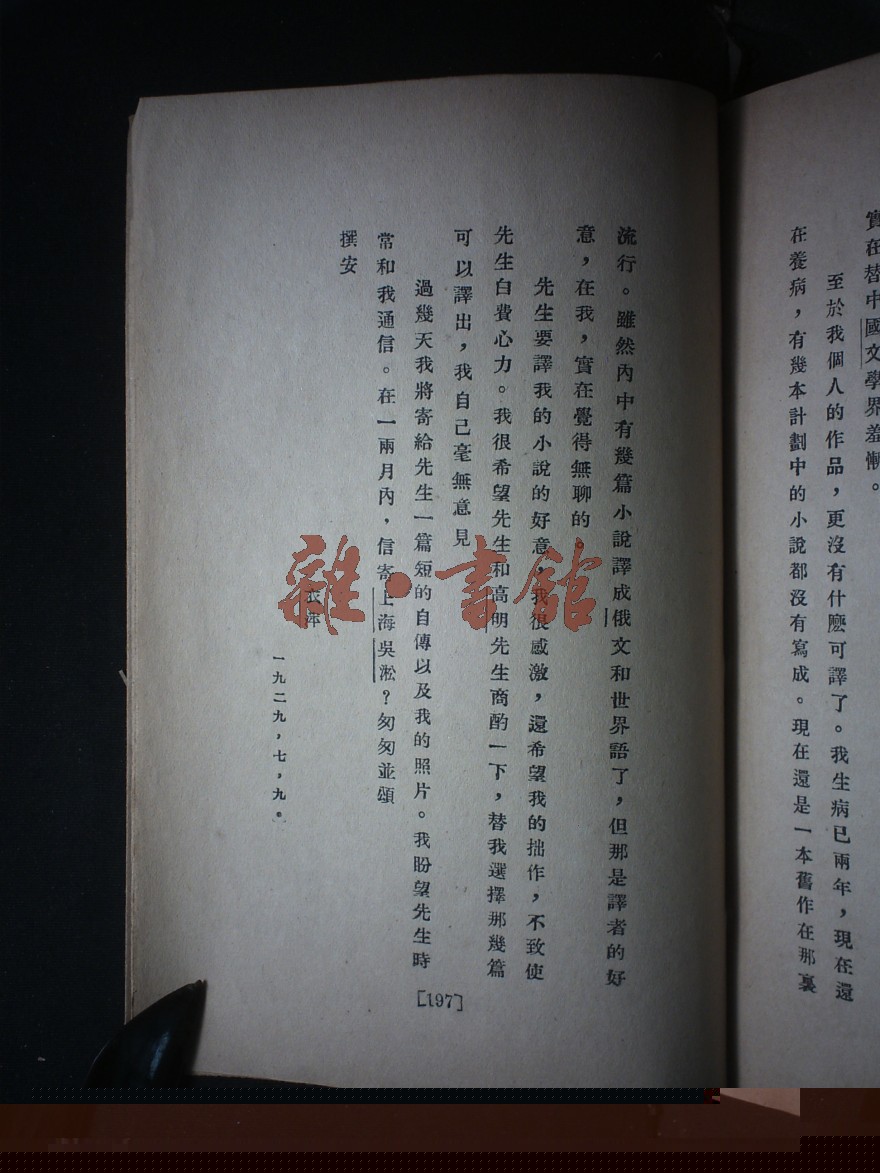 實在替中國文學界羞慚。
至於我個人的作品，更沒有什麼可譯了。我生病已兩年，現在還
在養病，有幾本計劃中的小說都沒有寫成。現在還是一本舊作在那裏
流行。雖然內中有幾篇小說譯成俄文和世界語了，但那是譯者的好
意，在我，實在覺得無聊的
先生要譯我的小說的好意，我很感激，還希望我的拙作，不致使
先生白費心力。我很希望先生和高明先生商酌一下，替我選擇那幾篇
可以譯出，我自己毫無意見
過幾天我將寄給先生一篇短的自傳以及我的照片。我盼望先生時
常和我通信。在一兩月內，信寄上海吳淞？匆匆並頌
撰安
衣萍
一九二九，七，九。
[197]
雜·書館